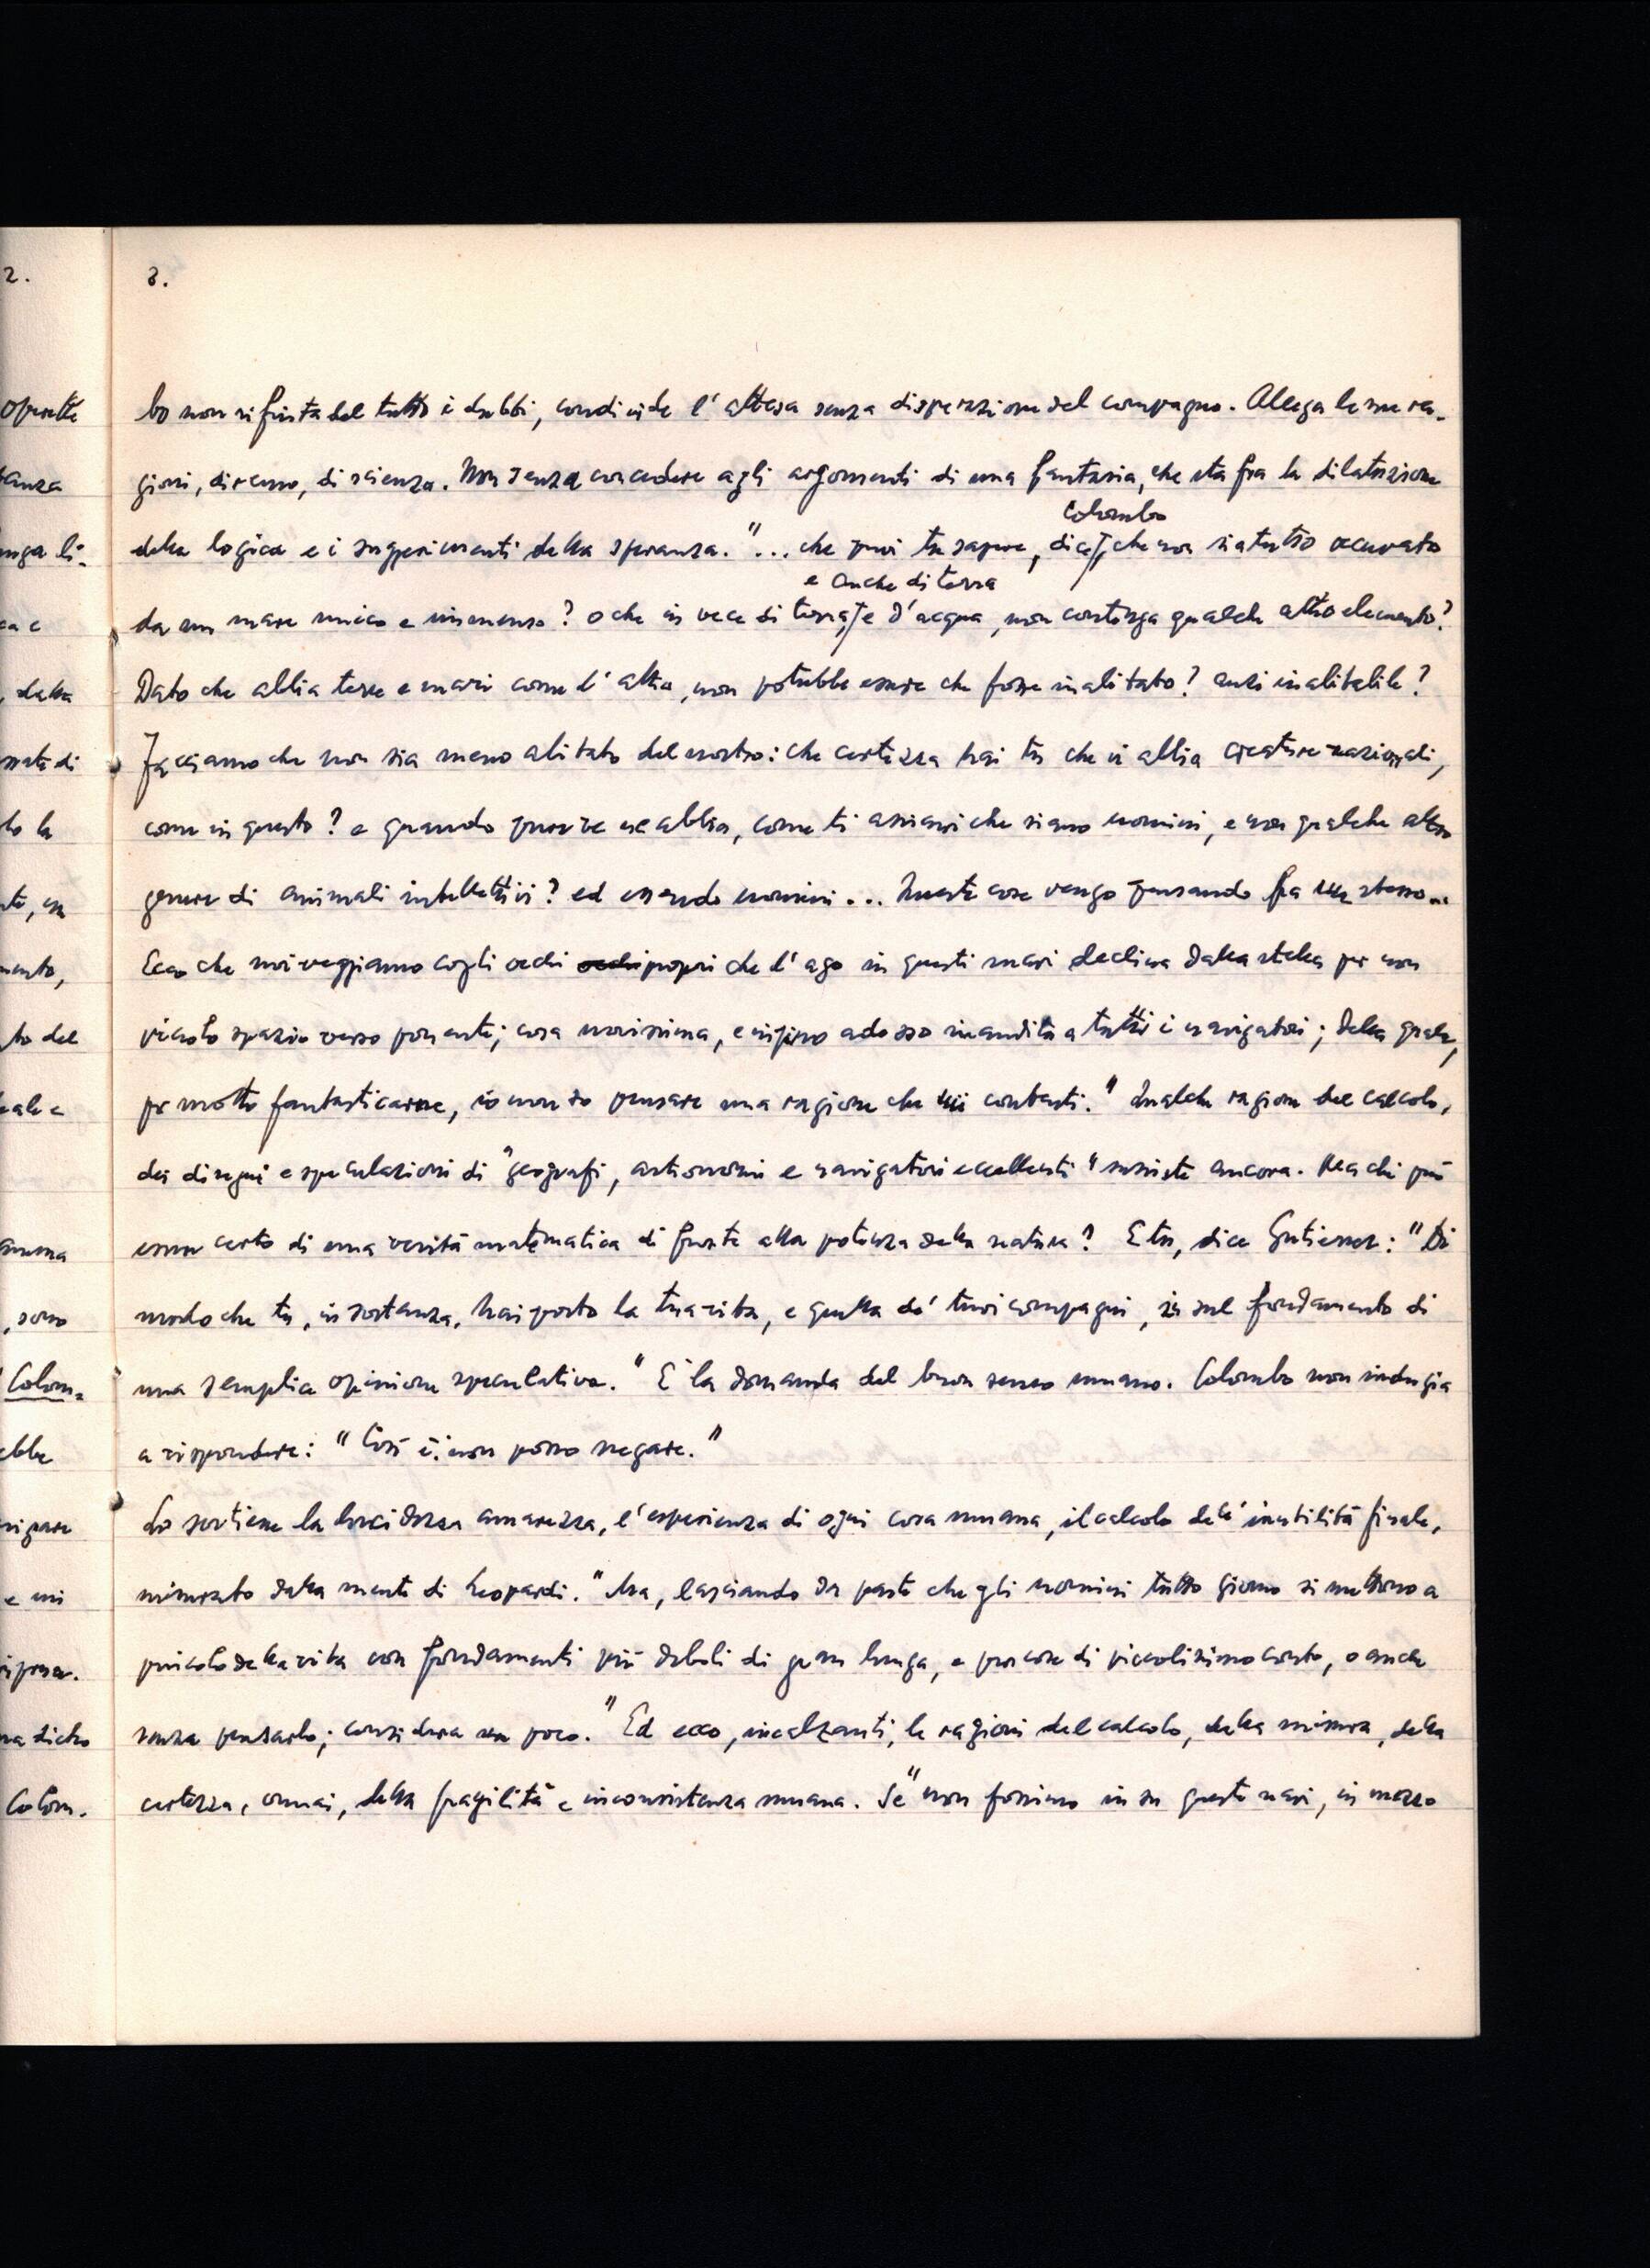 2.
3.
operette
bo non rifiuta del tutto i dubbi, condivide l'attesa senza disperazione del compagno. Allega le sue ra-
gioni, diremo, di scienza. Non senza concedere agli argomenti di una fantasia, che sta fra la dilatazione
Colombo
della logica e i suggerimenti della speranza. "... che puoi tu sapere, dice, che non sia tutto occupato
e anche di terra
da un mare unico e immenso? o che in vece di terra, e d'acqua, non contenga qualche altro elemento?
, della
Dato che abbia terre e mari come l'altro, non potrebbe essere che fosse inabitato? anzi inabitabile?
Facciamo che non sia meno abitato del nostro: che certezza hai tu che vi abbia creature razionali,
lo la
come in questo? e quando pure ve ne abbia, come ti assicuri che siano uomini, e non qualche altro
genere di animali intellettivi? ed essendo uomini... Queste cose vengo pensando fra me stesso...
Ecco che noi veggiamo cogli occhi occhi propri che l'ago in questi mari declina dalla stella per non
to del
piccolo spazio verso ponente; cosa novissima, e insino adesso inaudita a tutti i navigatori; della quale,
per molto fantasticarne, io non so pensare una ragione che mi contenti." Qualche ragione del calcolo,
dei disegni e speculazioni di "geografi, astronomi e navigatori eccellenti" sussiste ancora. Ma chi può
esser certo di una verità matematica di fronte alla potenza della natura? E tu, dice Gutierrez: "Di
, sono
modo che tu, in sostanza, hai posto la tua vita, e quella de' tuoi compagni, in sul fondamento di
Colom-
una semplice opinione speculativa." È la domanda del buon senso umano. Colombo non indugia
ebbe
a rispondere: "Così è: non posso negare."
Lo sostiene la lucidezza amarezza, l'esperienza di ogni cosa umana, il calcolo dell'inutilità finale,
e mi
misurato dalla mente di Leopardi. "Ma, lasciando da parte che gli uomini tutto giorno si mettono a
pericolo della vita con fondamenti più deboli di gran lunga, e per cose di piccolissimo conto, o anche
senza pensarlo; considera un poco." Ed ecco, incalzanti, le ragioni del calcolo, della misura, della
Colom-
certezza, ormai, della fragilità e inconsistenza umana. Se "non fossimo in su queste navi, in mezzo